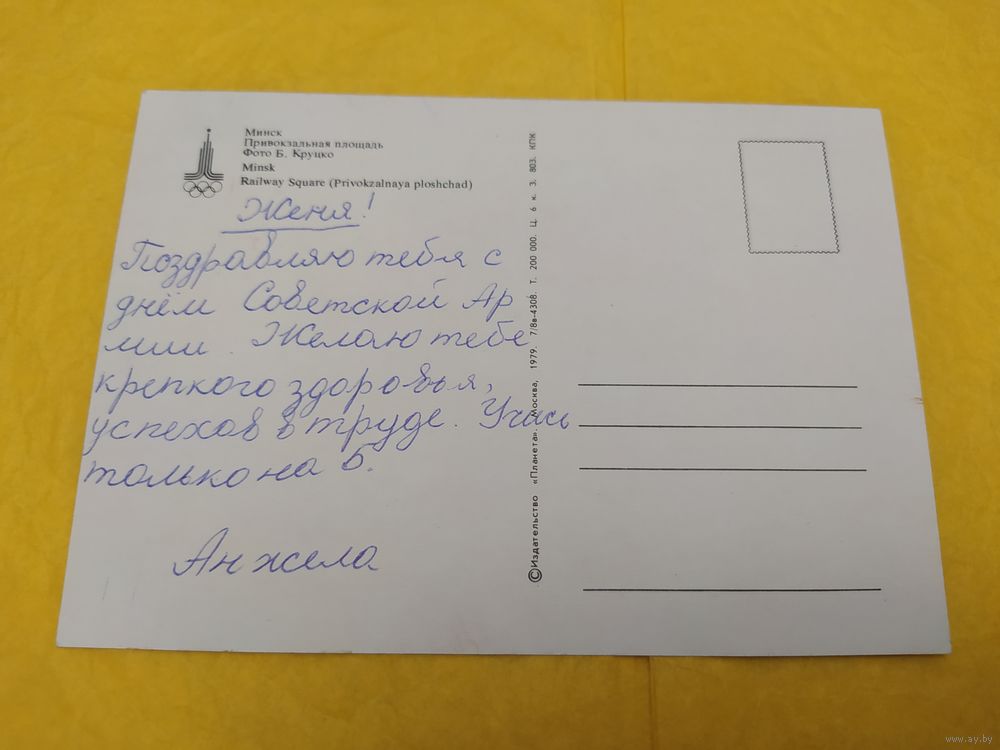 Минск
Привокзальная площадь
Фото Б. Круцко
Minsk
Railway Square (Privokzalnaya ploshchad)
Женя!
Поздравляю тебя с
днём Советской Ар
мии. Желаю тебе
крепкого здоровья,
успехов в труде. Учись
только на 5.
Анжела
© Издательство «Планета». Москва, 1979. 7/8в-4308. Т. 200 000. Ц. 6 к. З. 803. КПК
www.ay.by